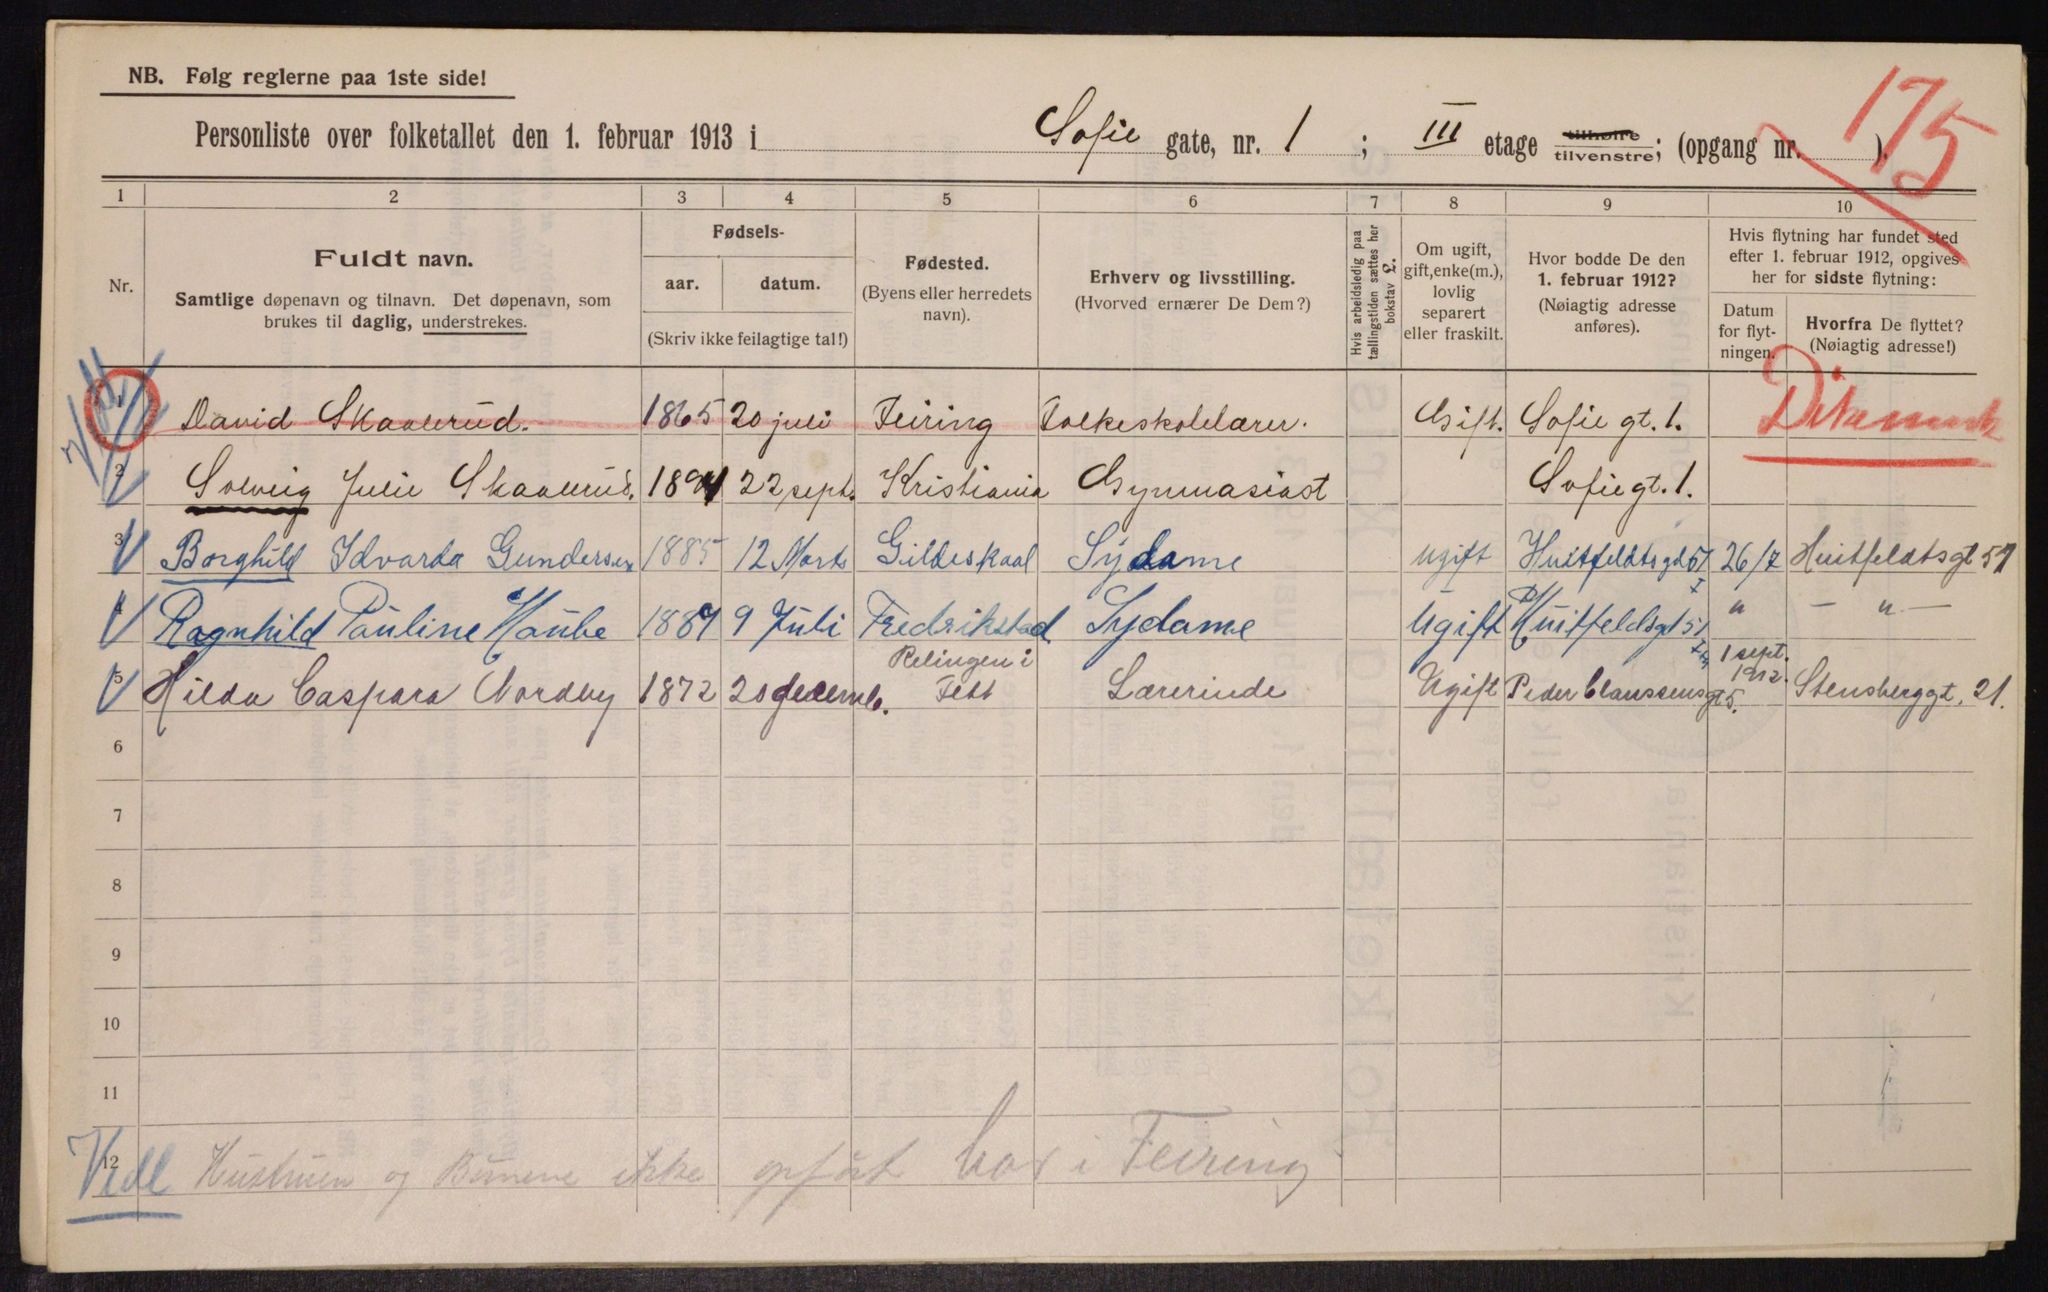 NB. Følg reglerne paa 1ste side!
175
Personliste over folketallet den 1. februar 1913 i Sofie gate, nr. 1 ; III etage tilhøire tilvenstre; (opgang nr. ).
1 2 3 4 5 6 7 8 9 10
Nr.
Fuldt navn.
Samtlige døpenavn og tilnavn. Det døpenavn, som
brukes til daglig, understrekes.
Fødsels-
aar. datum.
(Skriv ikke feilagtige tal!)
Fødested.
(Byens eller herredets
navn).
Erhverv og livsstilling.
(Hvorved ernærer De Dem?)
Hvis arbeidsledig paa
tællingstiden sættes her
bokstav L.
Om ugift,
gift,enke(m.),
lovlig
separert
eller fraskilt.
Hvor bodde De den
1. februar 1912?
(Nøiagtig adresse
anføres).
Hvis flytning har fundet sted
efter 1. februar 1912, opgives
her for sidste flytning:
Datum
for flyt-
ningen.
Hvorfra De flyttet?
(Nøiagtig adresse!)
Dikemark
1 David Skaalerud. 1865 20 juli Feiring Folkeskolelærer. Gift. Sofie gt. 1.
2 Solveig Julie Skaalerud. 1894 22 sept. Kristiania Gymnasiast Sofiegt. 1.
3 Borghild Idvarda Gundersen 1885 12 Marts Gildeskaal Sydame ugift Huitfeldtsgd 51 I 26/7 Huitfeldtsgt 51
4 Ragnhild Pauline Haube 1887 9 Juli Fredrikstad Sydame Ugift Huitfeldsgt 51 " — " —
5 Hilda Caspara Nordby 1872 20 decemb. Relingen i Fett Lærerinde Ugift Peder Claussensgt 5. 1 sept. 1912. Stensberggt. 21.
6
7
8
9
10
11
12 Vedl Hustruen og Børnene ikke opført bor i Feiring